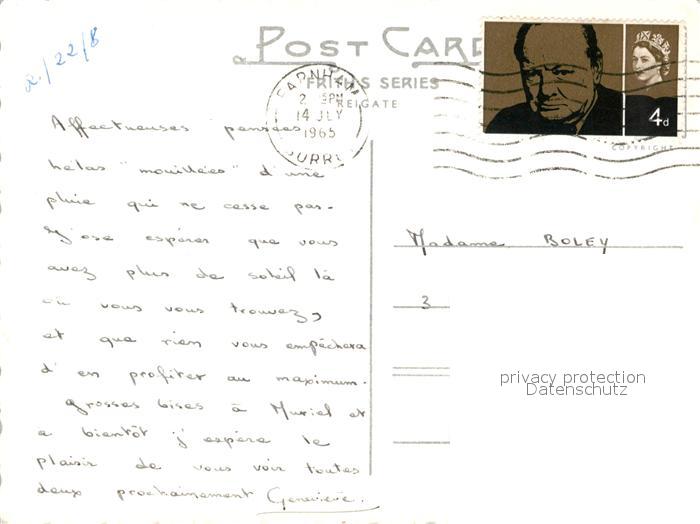 a/22/8
POST CARD
FRITHS SERIES
REIGATE
FARNHAM
2 PM
14 JLY
1965
SURREY
4d
COPYRIGHT
Affectueuses pensées
hélas "mouillées" d'une
pluie qui ne cesse pas.
J'ose espérer que vous
avez plus de soleil là
où vous vous trouvez,
et que rien vous empêchera
d'en profiter au maximum.
Grosses bises à Muriel et
a bientôt j'espère le
plaisir de vous voir toutes
deux prochainement Geneviève.
Madame BOLEY
3
privacy protection
Datenschutz